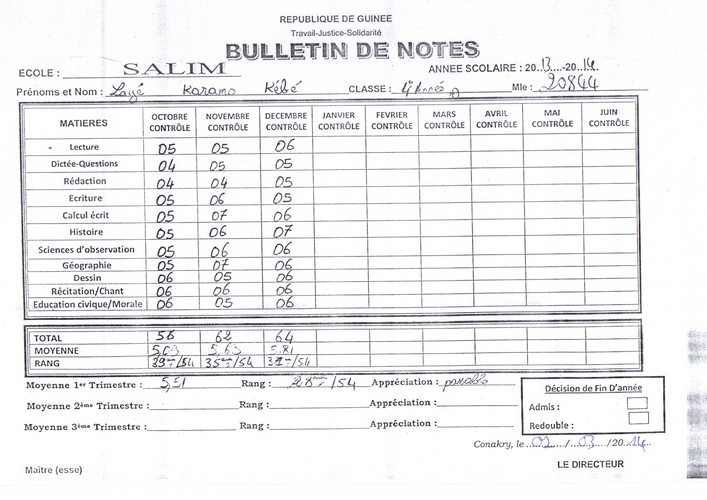 REPUBLIQUE DE GUINEE
Travail-Justice-Solidarité
BULLETIN DE NOTES
ECOLE : SALIM ANNEE SCOLAIRE : 2013-2014
Prénoms et Nom : Layé Karamo Kébé CLASSE : 4ème Année A Mle : 20844
MATIERES OCTOBRE CONTRÔLE NOVEMBRE CONTRÔLE DECEMBRE CONTRÔLE JANVIER CONTRÔLE FEVRIER CONTRÔLE MARS CONTRÔLE AVRIL CONTRÔLE MAI CONTRÔLE JUIN CONTRÔLE
Lecture 05 05 06
Dictée-Questions 04 05 05
Rédaction 04 04 05
Ecriture 05 06 05
Calcul écrit 05 07 06
Histoire 05 06 07
Sciences d'observation 05 06 06
Géographie 05 07 06
Dessin 06 05 06
Récitation/Chant 06 06 06
Education civique/Morale 06 05 06
TOTAL 56 62 64
MOYENNE 5,09 5,63 5,81
RANG 39ème/54 35ème/54 /54
Moyenne 1er Trimestre : 5,51 Rang : 28ème/54 Appréciation : passable
Moyenne 2ème Trimestre : Rang : Appréciation :
Moyenne 3ème Trimestre : Rang : Appréciation :
Décision de Fin D'année
Admis :
Redouble :
Conakry, le 02/03/2014
Maître (esse) LE DIRECTEUR